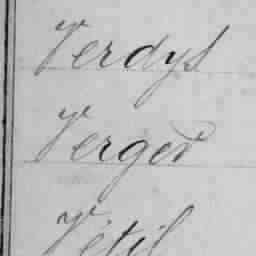 Verdys
Verger
Vétil